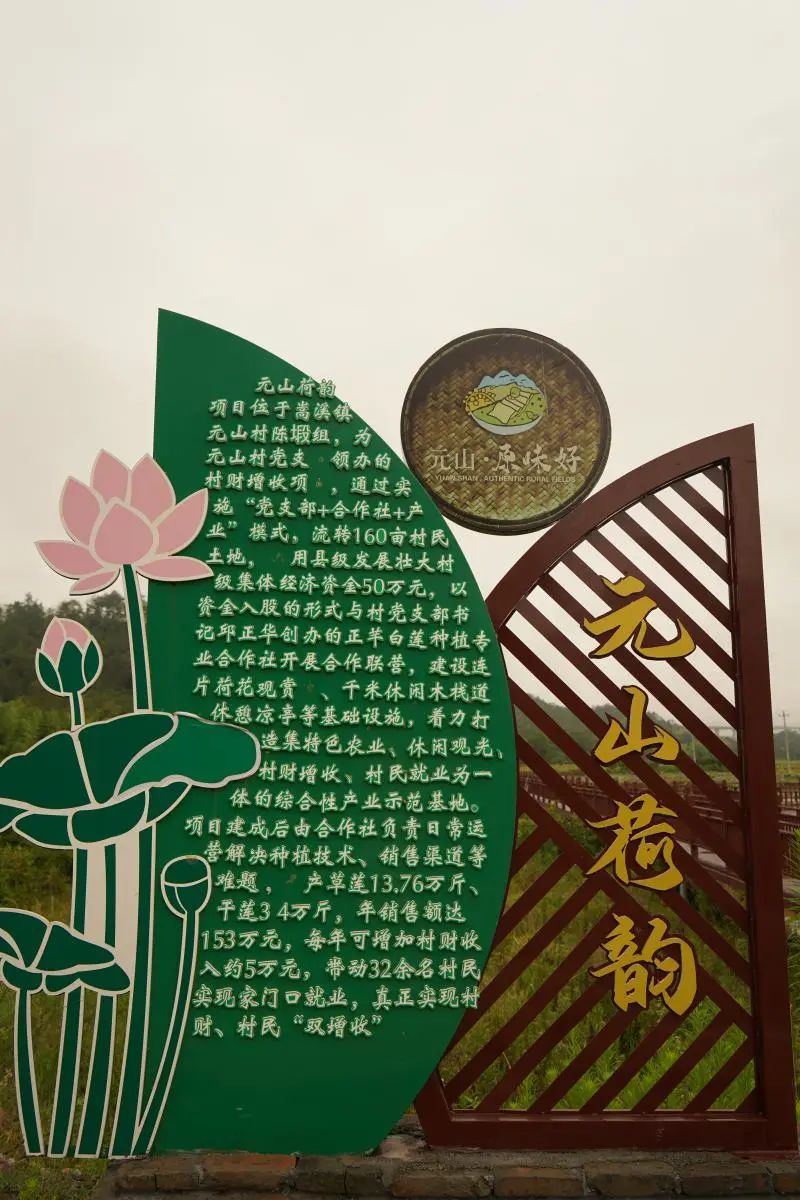 元山荷韵
项目位于嵩溪镇
元山村陈塅组，为
元山村党支 领办的
村财增收项 ，通过实
施“党支部+合作社+产
业”模式，流转160亩村民
土地， 用县级发展壮大村
级集体经济资金50万元，以
资金入股的形式与村党支部书
记邱正华创办的正羊白莲种植专
业合作社开展合作联营，建设连
片荷花观赏 、千米休闲木栈道
休憩凉亭等基础设施，着力打
造集特色农业、休闲观光、
村财增收、村民就业为一
体的综合性产业示范基地。
项目建成后由合作社负责日常运
营解决种植技术、销售渠道等
难题， 产草莲13.76万斤、
干莲3 4万斤，年销售额达
153万元，每年可增加村财收
入约5万元，带动32余名村民
实现家门口就业，真正实现村
财、村民“双增收”
元山·原味好
YUAN SHAN . AUTHENTIC RURAL FIELDS
元山荷韵